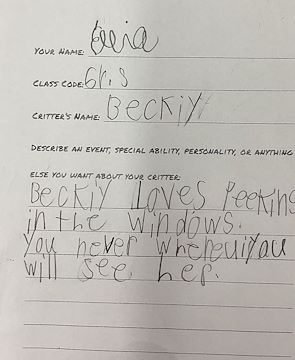 YOUR NAME:
CLASS CODE: Gr. S
CRITTER'S NAME: BeckiY
DESCRIBE AN EVENT, SPECIAL ABILITY, PERSONALITY, OR ANYTHING
ELSE YOU WANT ABOUT YOUR CRITTER:
BeckiY Loves Peeking
in the windows.
You never
will see her.